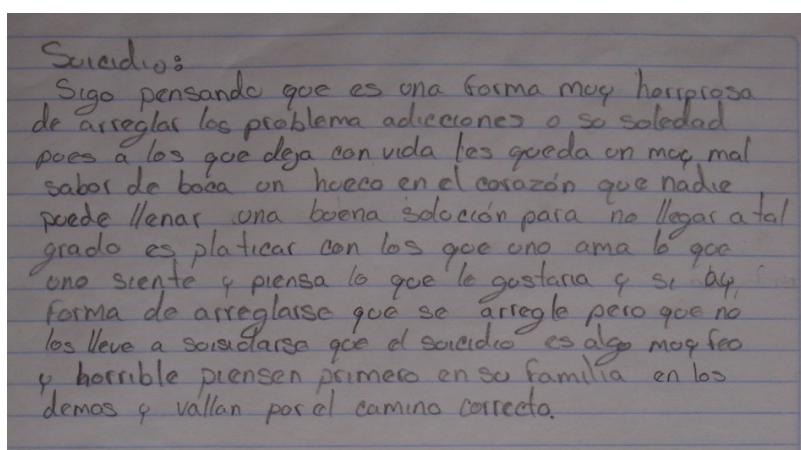 Suicidio:
Sigo pensando que es una forma muy horrprosa
de arreglar los problema adicciones o su soledad
pues a los que deja con vida les queda un muy mal
sabor de boca un hueco en el corazón que nadie
puede llenar una buena solución para no llegar a tal
grado es platicar con los que uno ama lo que
uno siente y piensa lo que le gustaria y si ay
forma de arreglarse que se arregle pero que no
los lleve a suisidarse que el suicidio es algo muy feo
y horrible piensen primero en su familia en los
demos y vallan por el camino correcto.